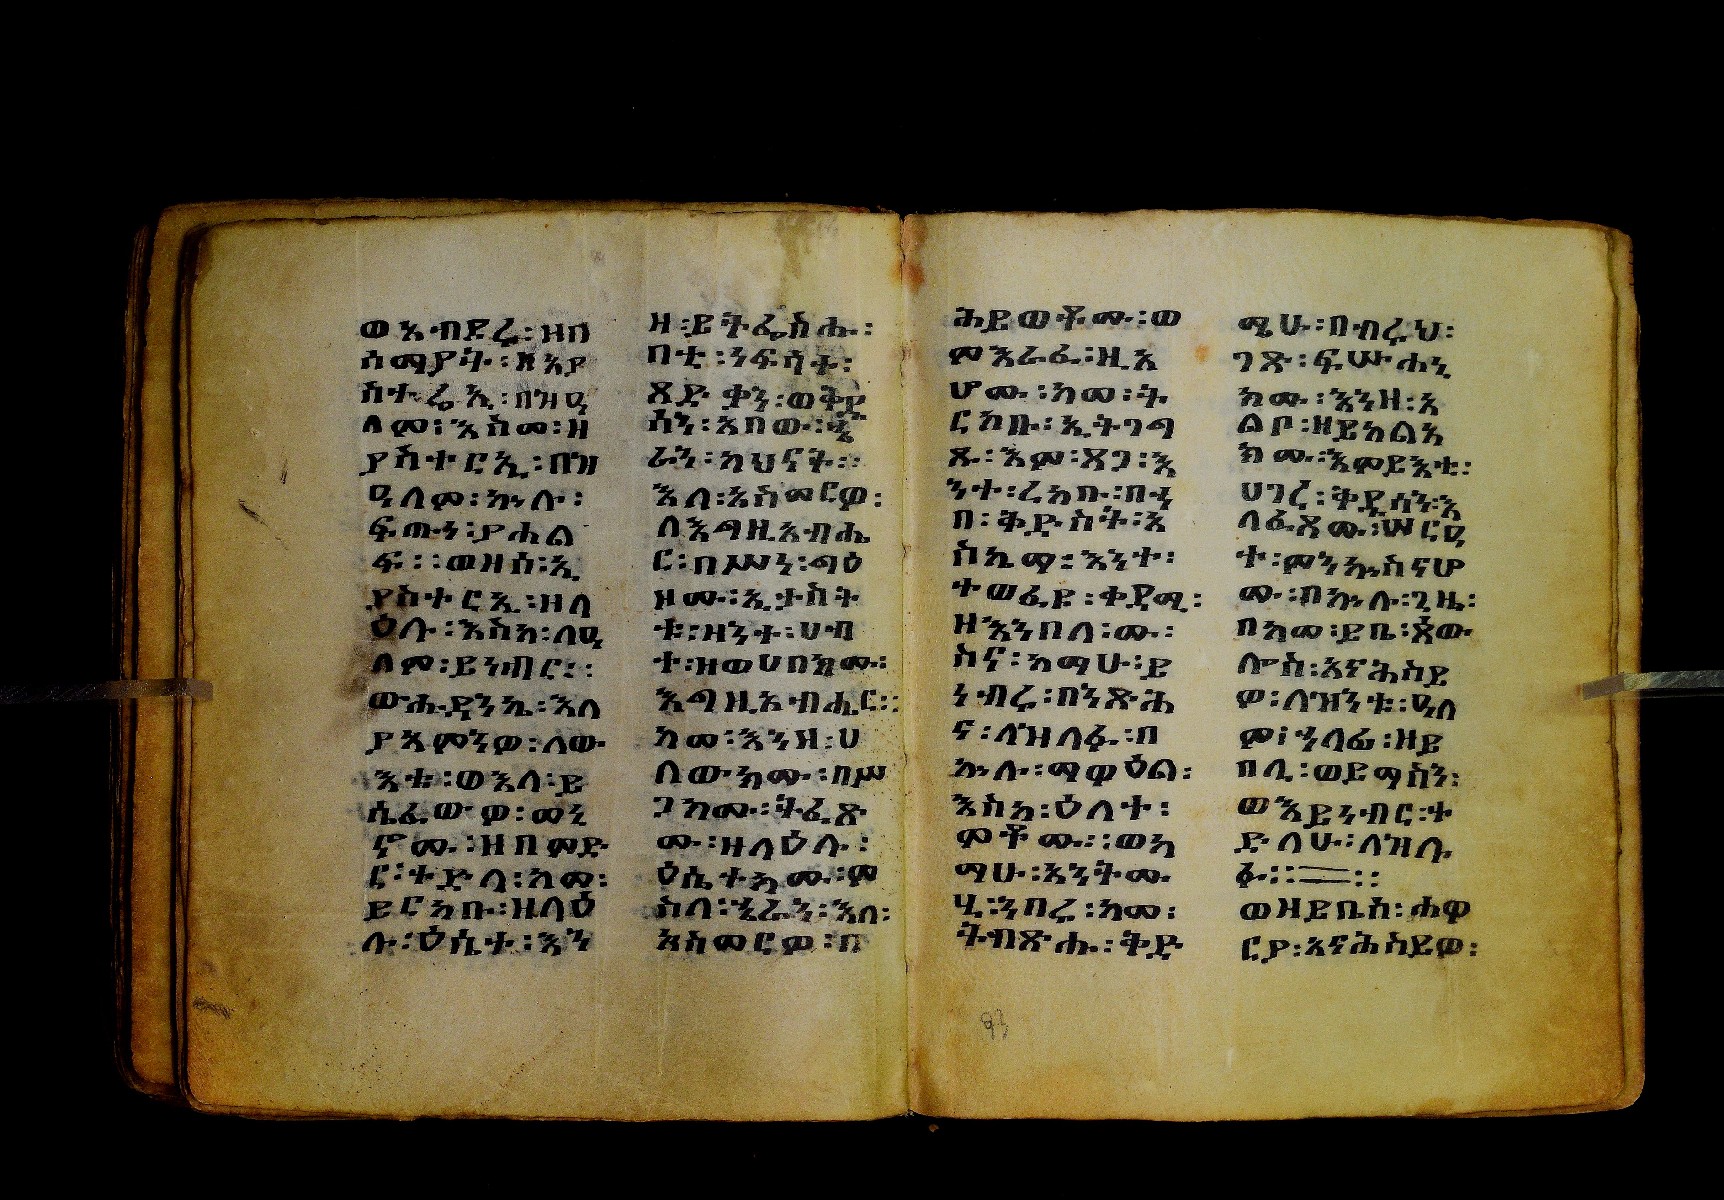 ወአብደረ፡ዘበ
ሰማያት፡ዘኢያ
ስተሬኢ፡በዝዓ
ለም፡እስመ፡ዘ
ያስተርኢ፡በዝ
ዓለም፡ኵሉ፡
ፍጡን፡ያሐል
ፍ፡፡ወዘሰ፡ኢ
ያስተርኢ፡ዘለ
ዕሉ፡እስከ፡ለዓ
ለም፡ይነብር፡፡
ውሑዳንኬ፡እለ
ያአምንዎ፡ለው
እቱ፡ወእለ፡ይ
ሴፈውዎ፡መኒ
ኖሙ፡ዘበምድ
ር፡ተድላ፡ከመ፡
ይርከቡ፡ዘላዕ
ሉ፡ዕሴተ፡እን
ዘ፡ይትፌስሑ፡
በቲ፡ንፍሳት፡
ጻድቃን፡ወቅዱ
ሳን፡አበው፡ኄ
ራን፡ካህናት፡፡
እለ፡አስመርዎ፡
ለእግዚአብሔ
ር፡በሥነ፡ግዕ
ዘሙ፡ኢታስት
ቱ፡ዘንተ፡ሀብ
ተ፡ዘወሀበክሙ፡
እግዚአብሔር፡፡
ከመ፡እንዘ፡ሀ
ለውክሙ፡በሥ
ጋክሙ፡ትፈጽ
ሙ፡ዘላዕሉ፡
ዕሴተክሙ፡ም
ስለ፡ኄራን፡እለ፡
አስመርዎ፡በ
ሕይወቶሙ፡ወ
ምእራፈ፡ዚአ
ሆሙ፡ከመ፡ት
ርከቡ፡ኢትግግ
ጹ፡እም፡ጸጋ፡እ
ንተ፡ረከቡ፡በቲ
በ፡ቅድስት፡አ
ስኬማ፡እንተ፡
ተወፈየ፡ቀዳሚ፡
ዘእንበለ፡ሙ፡
ስና፡ከማሁ፡ይ
ነብሩ፡በንጽሕ
ና፡ለዝላፉ፡በ
ኵሉ፡ማዋዕል፡
እስከ፡ዕለተ፡
ምቶሙ፡፡ወከ
ማሁ፡አንትሙ
ሂ፡ንበሩ፡ከመ፡
ትብጽሑ፡ቅድ
ሜሁ፡በብሩህ፡
ገጽ፡ፍሡሐኒ
ክሙ፡እንዘ፡አ
ልቦ፡ዘይከልአ
ክሙ፡እምይእቲ፡
ሀገረ፡ቅዱሳን፡እ
ለፈጸሙ፡ሠርዓ
ተ፡ምንኵስናሆ
ሙ፡በኵሉ፡ጊዜ፡
በከመ፡ይቤ፡ጳው
ሎስ፡አኀሕስይ
ዎ፡ለዝንቱ፡ዓለ
ም፡ኀላፊ፡ዘይ
በሊ፡ወይማስን፡
ወእይነብር፡ተ
ድላሁ፡ለዝሉ
ፉ፡፡፡፡
ወዘይቤሰ፡ሐዋ
ርያ፡አኀሕስይዎ፡